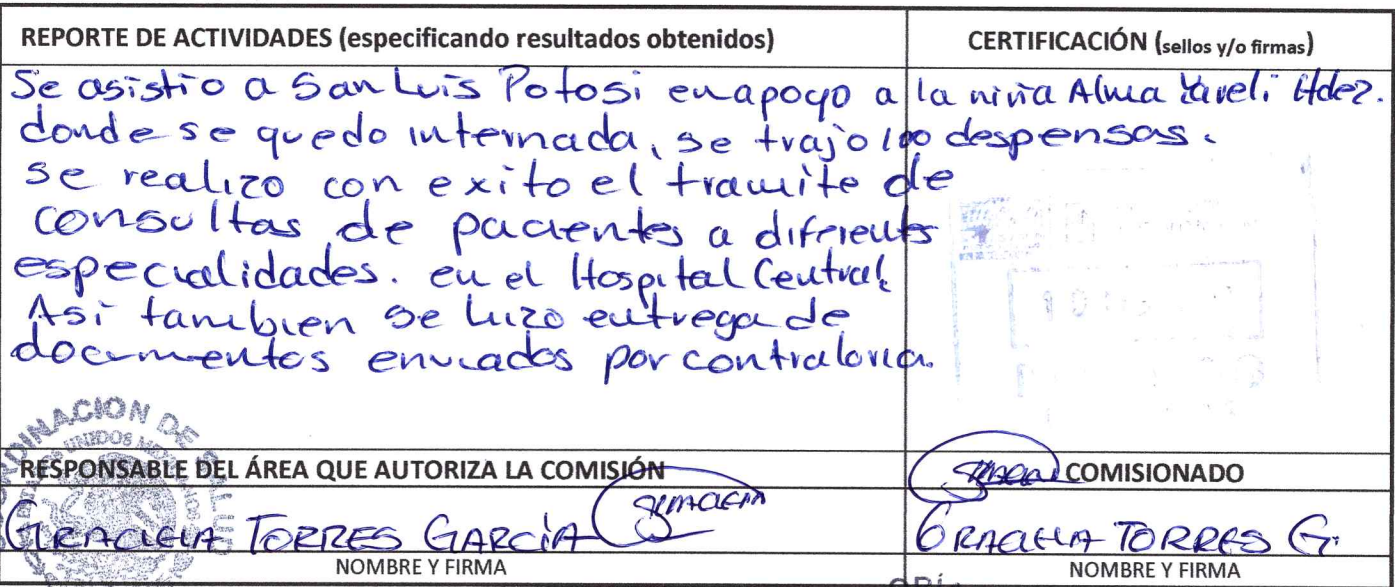 REPORTE DE ACTIVIDADES (especificando resultados obtenidos)
CERTIFICACIÓN (sellos y/o firmas)
Se asistio a San Luis Potosi en apoyo a la niña Alma Yaveli Hdez.
donde se quedo internada, se trajo 100 despensas.
se realizo con exito el tramite de
consultas de pacientes a diferents
especialidades. en el Hospital Central,
Así tambien se hizo entrega de
documentos enviados por contraloria.
RESPONSABLE DEL ÁREA QUE AUTORIZA LA COMISIÓN
COMISIONADO
GRACIELA TORRES GARCÍA
GRACIELA TORRES G.
NOMBRE Y FIRMA
NOMBRE Y FIRMA